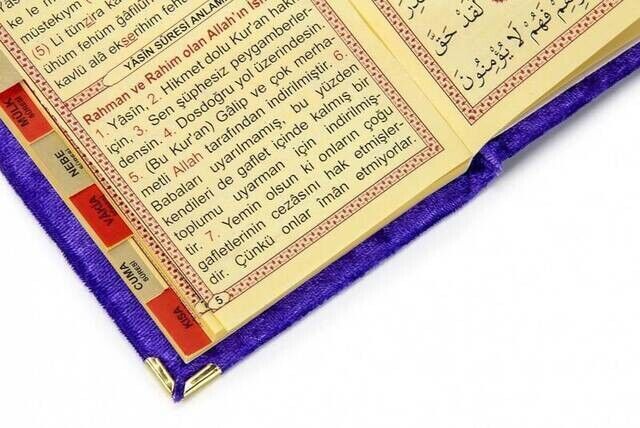 ke le m
müstekıym
(5) Li tünzira ka
ühüm fehüm ğâfilûn
kavlü alâ ekserihim fehü
YASİN SÛRESİ ANLAM
Rahman ve Rahim olan Allah'ın is
1. Yâsîn, 2. Hikmet dolu Kur'an hakk
için, 3. Sen şüphesiz peygamberler
densin. 4. Dosdoğru yol üzerindesin.
5. (Bu Kur'an) Gâlip ve çok merha-
metli Allah tarafından indirilmiştir. 6.
Babaları uyarılmamış, bu yüzden
kendileri de gaflet içinde kalmış bir
toplumu uyarman için indirilmiş-
tir. 7. Yemin olsun ki onların çoğu
gafletlerinin cezâsını hak etmişler-
dir. Çünkü onlar îmân etmiyorlar.
5
لَقَدْ حَقَّ
فَهُمْ لَا يُؤْمِنُونَ
MÜLK
SÛRESİ
NEBE
VAKIA
CUMA
SÛRESİ
KISA